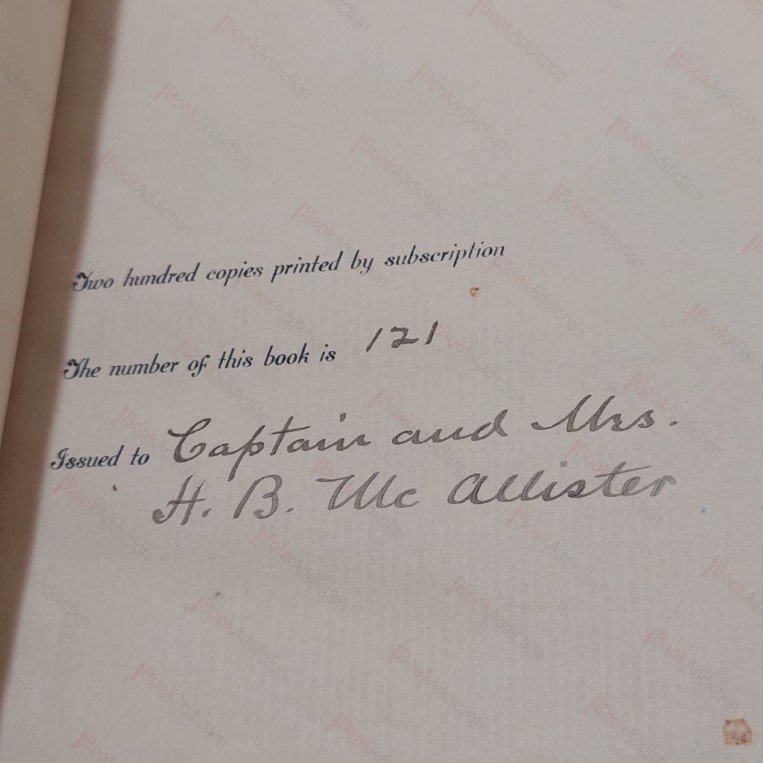 Two hundred copies printed by subscription
The number of this book is 121
Issued to Captain and Mrs.
H. B. McAllister
BookAddiction